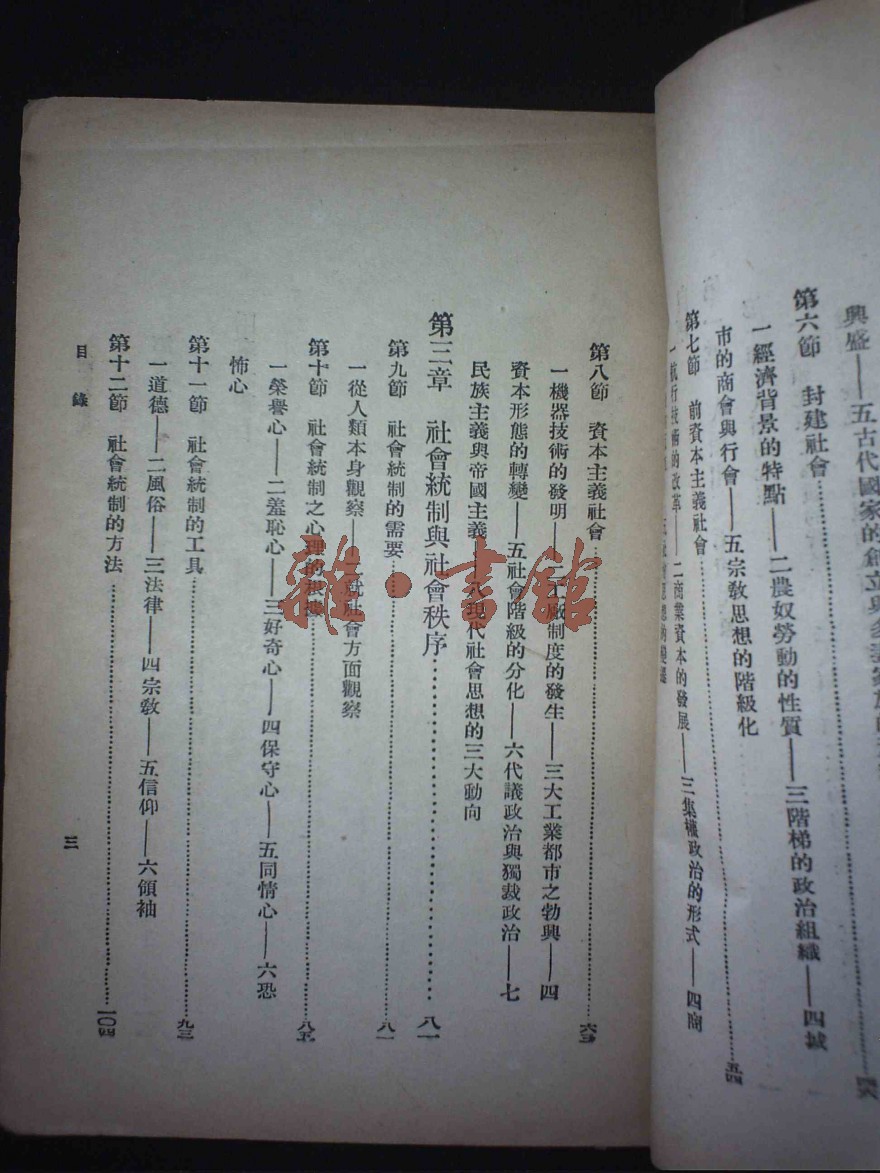 興盛——五古代國家的創立與
第六節　封建社會
一經濟背景的特點——二農奴勞動的性質——三階梯的政治組織——四城
市的商會與行會——五宗教思想的階級化
第七節　前資本主義社會……五四
一航行技術的改革——二商業資本的發展——三集權政治的形式——四
第八節　資本主義社會……六三
一機器技術的發明——二工廠制度的發生——三大工業都市之勃興——四
資本形態的轉變——五社會階級的分化——六代議政治與獨裁政治——七
民族主義與帝國主義——八現代社會思想的三大動向
第三章　社會統制與社會秩序……八一
第九節　社會統制的需要……八一
一從人類本身觀察——二就社會方面觀察
第十節　社會統制之心理的根據……八五
一榮譽心——二羞恥心——三好奇心——四保守心——五同情心——六恐
怖心
第十一節　社會統制的工具……九三
一道德——二風俗——三法律——四宗教——五信仰——六領袖
第十二節　社會統制的方法……一〇四
目錄
三
雜·書館